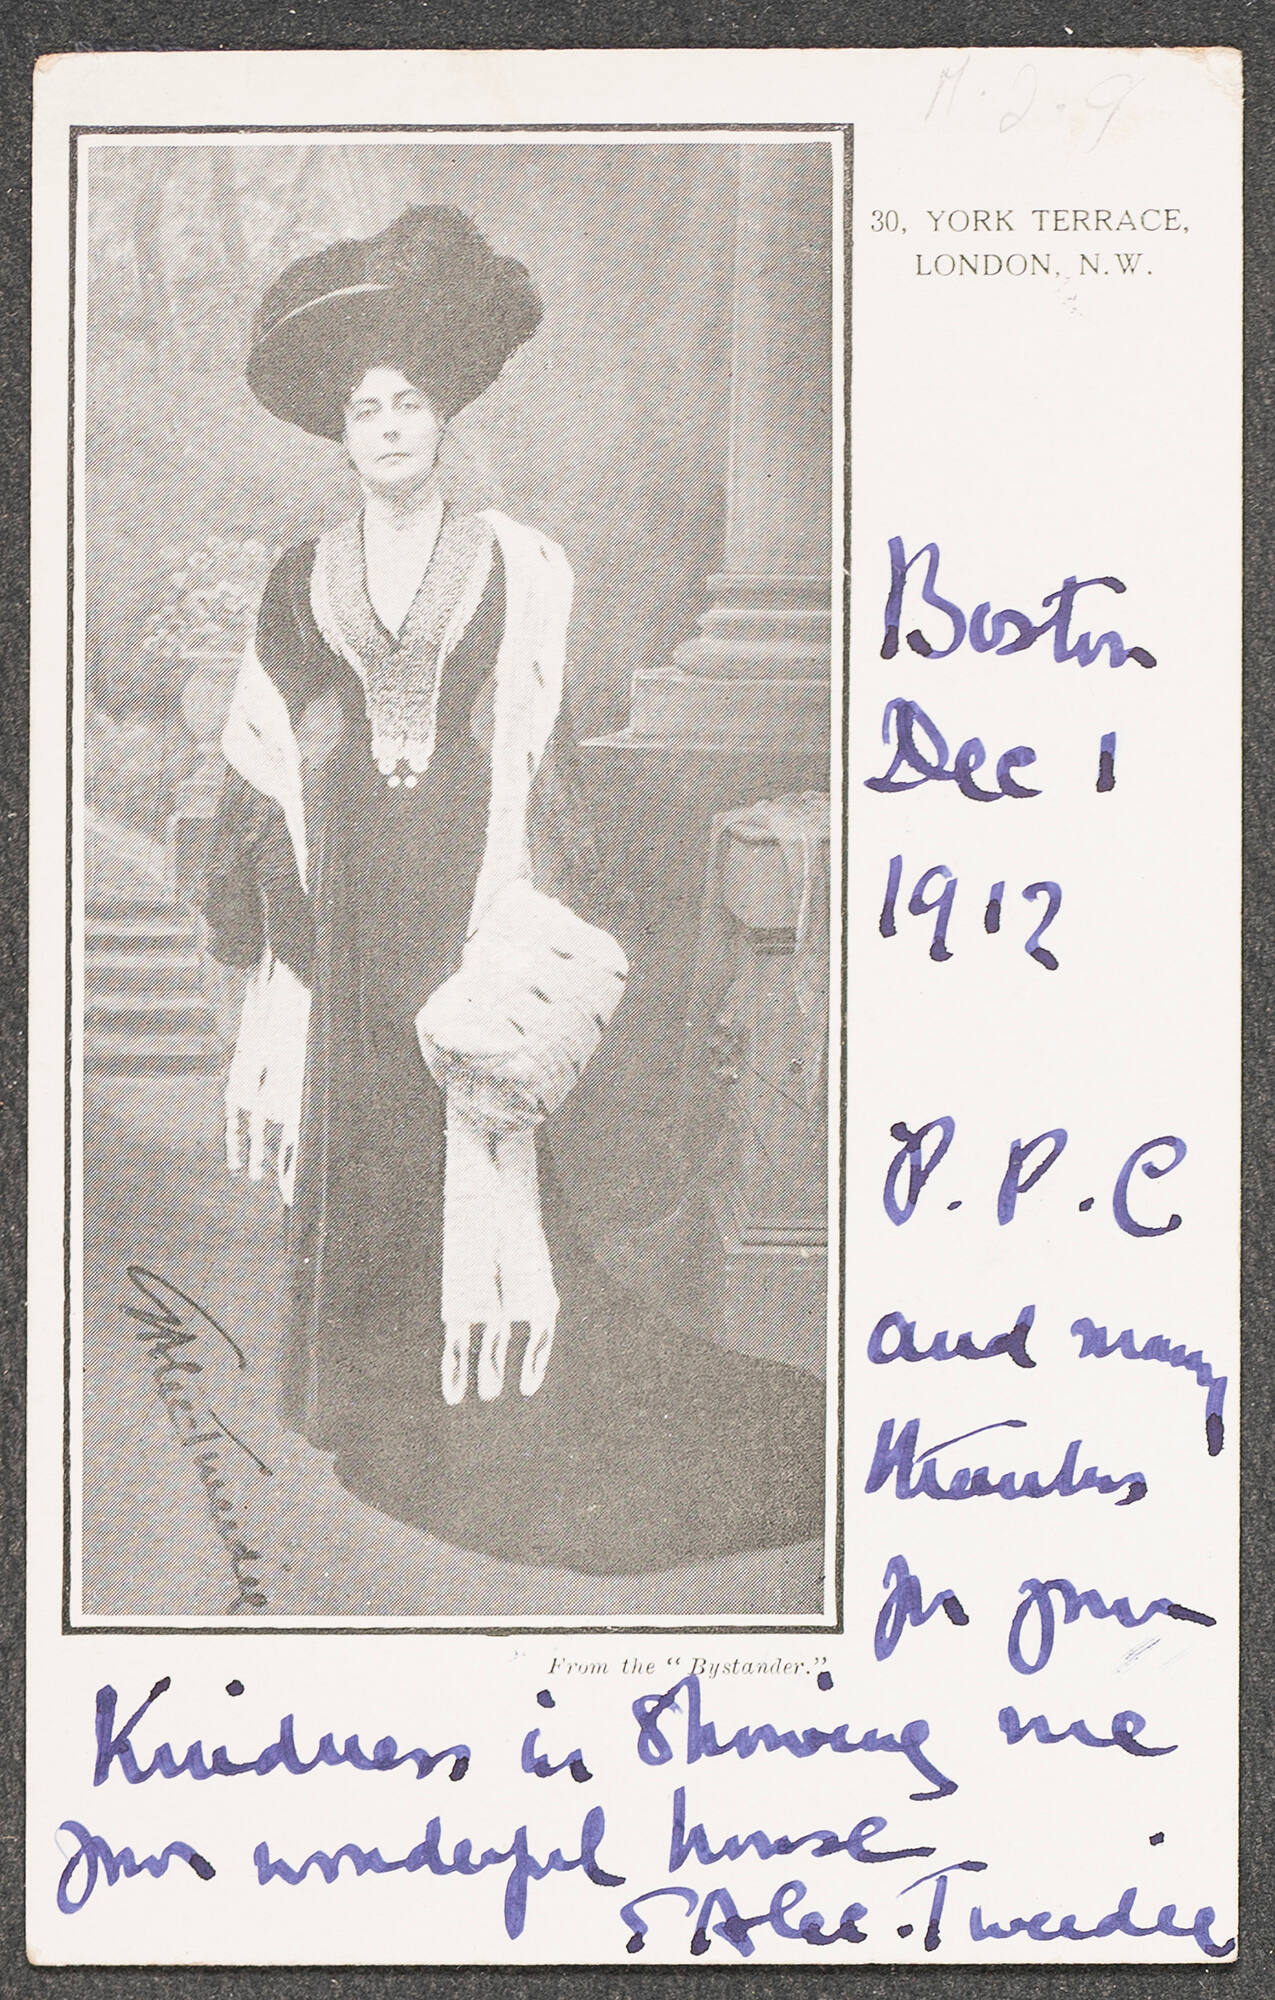 30, YORK TERRACE,
LONDON, N.W.
Boston
Dec 1
1912
P. P. C
and many
thanks
for your
From the "Bystander."
Kindness in showing me
your wonderful house
E Alec-Tweedie
Alec Tweedie